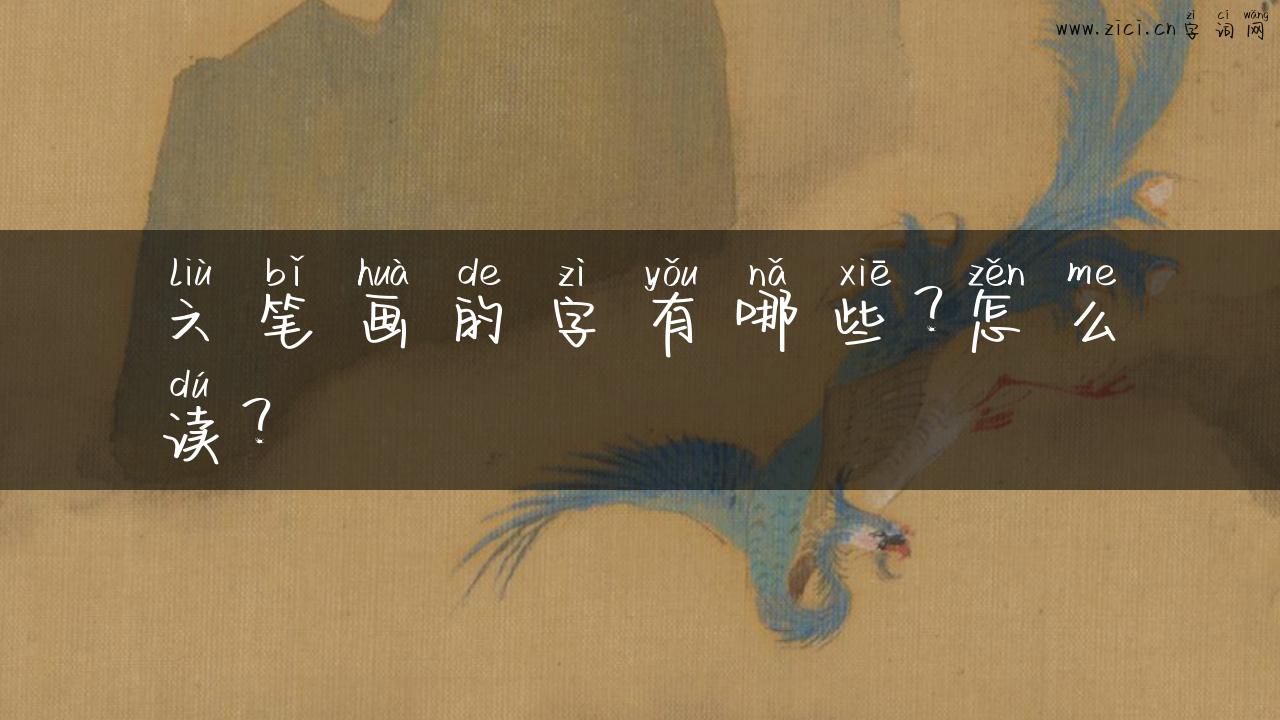 zì cí wǎng
www.zici.cn 字 词 网
liù bǐ huà de zì yǒu nǎ xiē zěn me
六 笔 画 的 字 有 哪 些 ? 怎 么
dú
读 ?